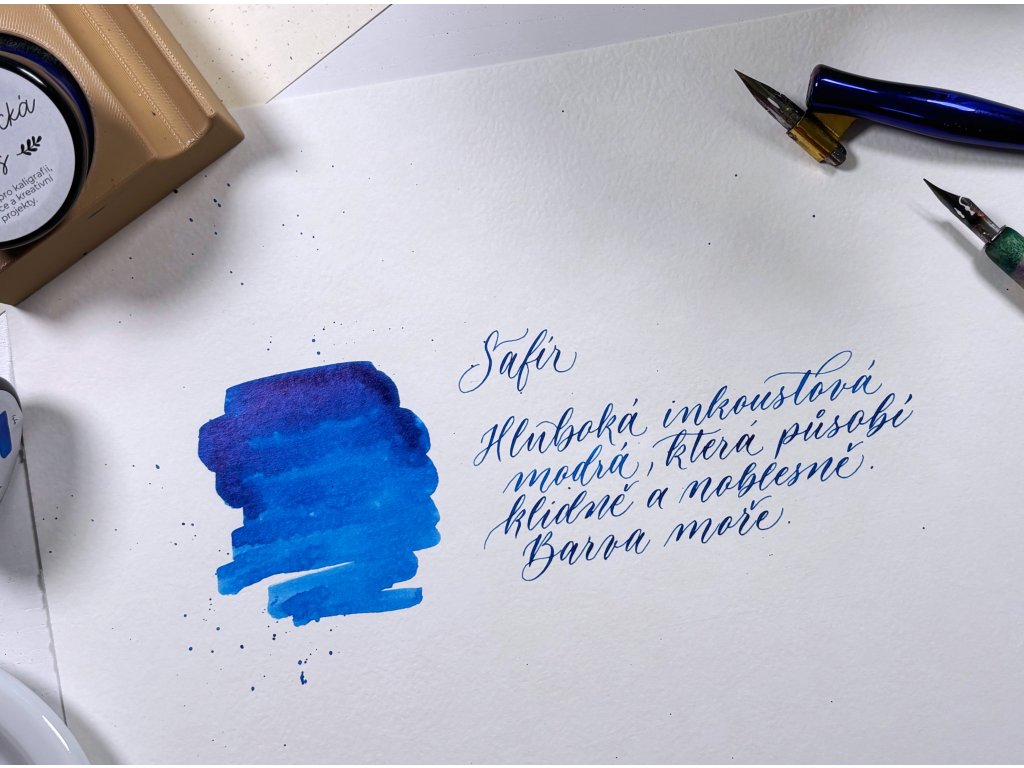 Safír
Hluboká inkoustová
modrá, která působí
klidně a noblesně.
Barva moře.
pro kaligrafii,
a kreativní
projekty.